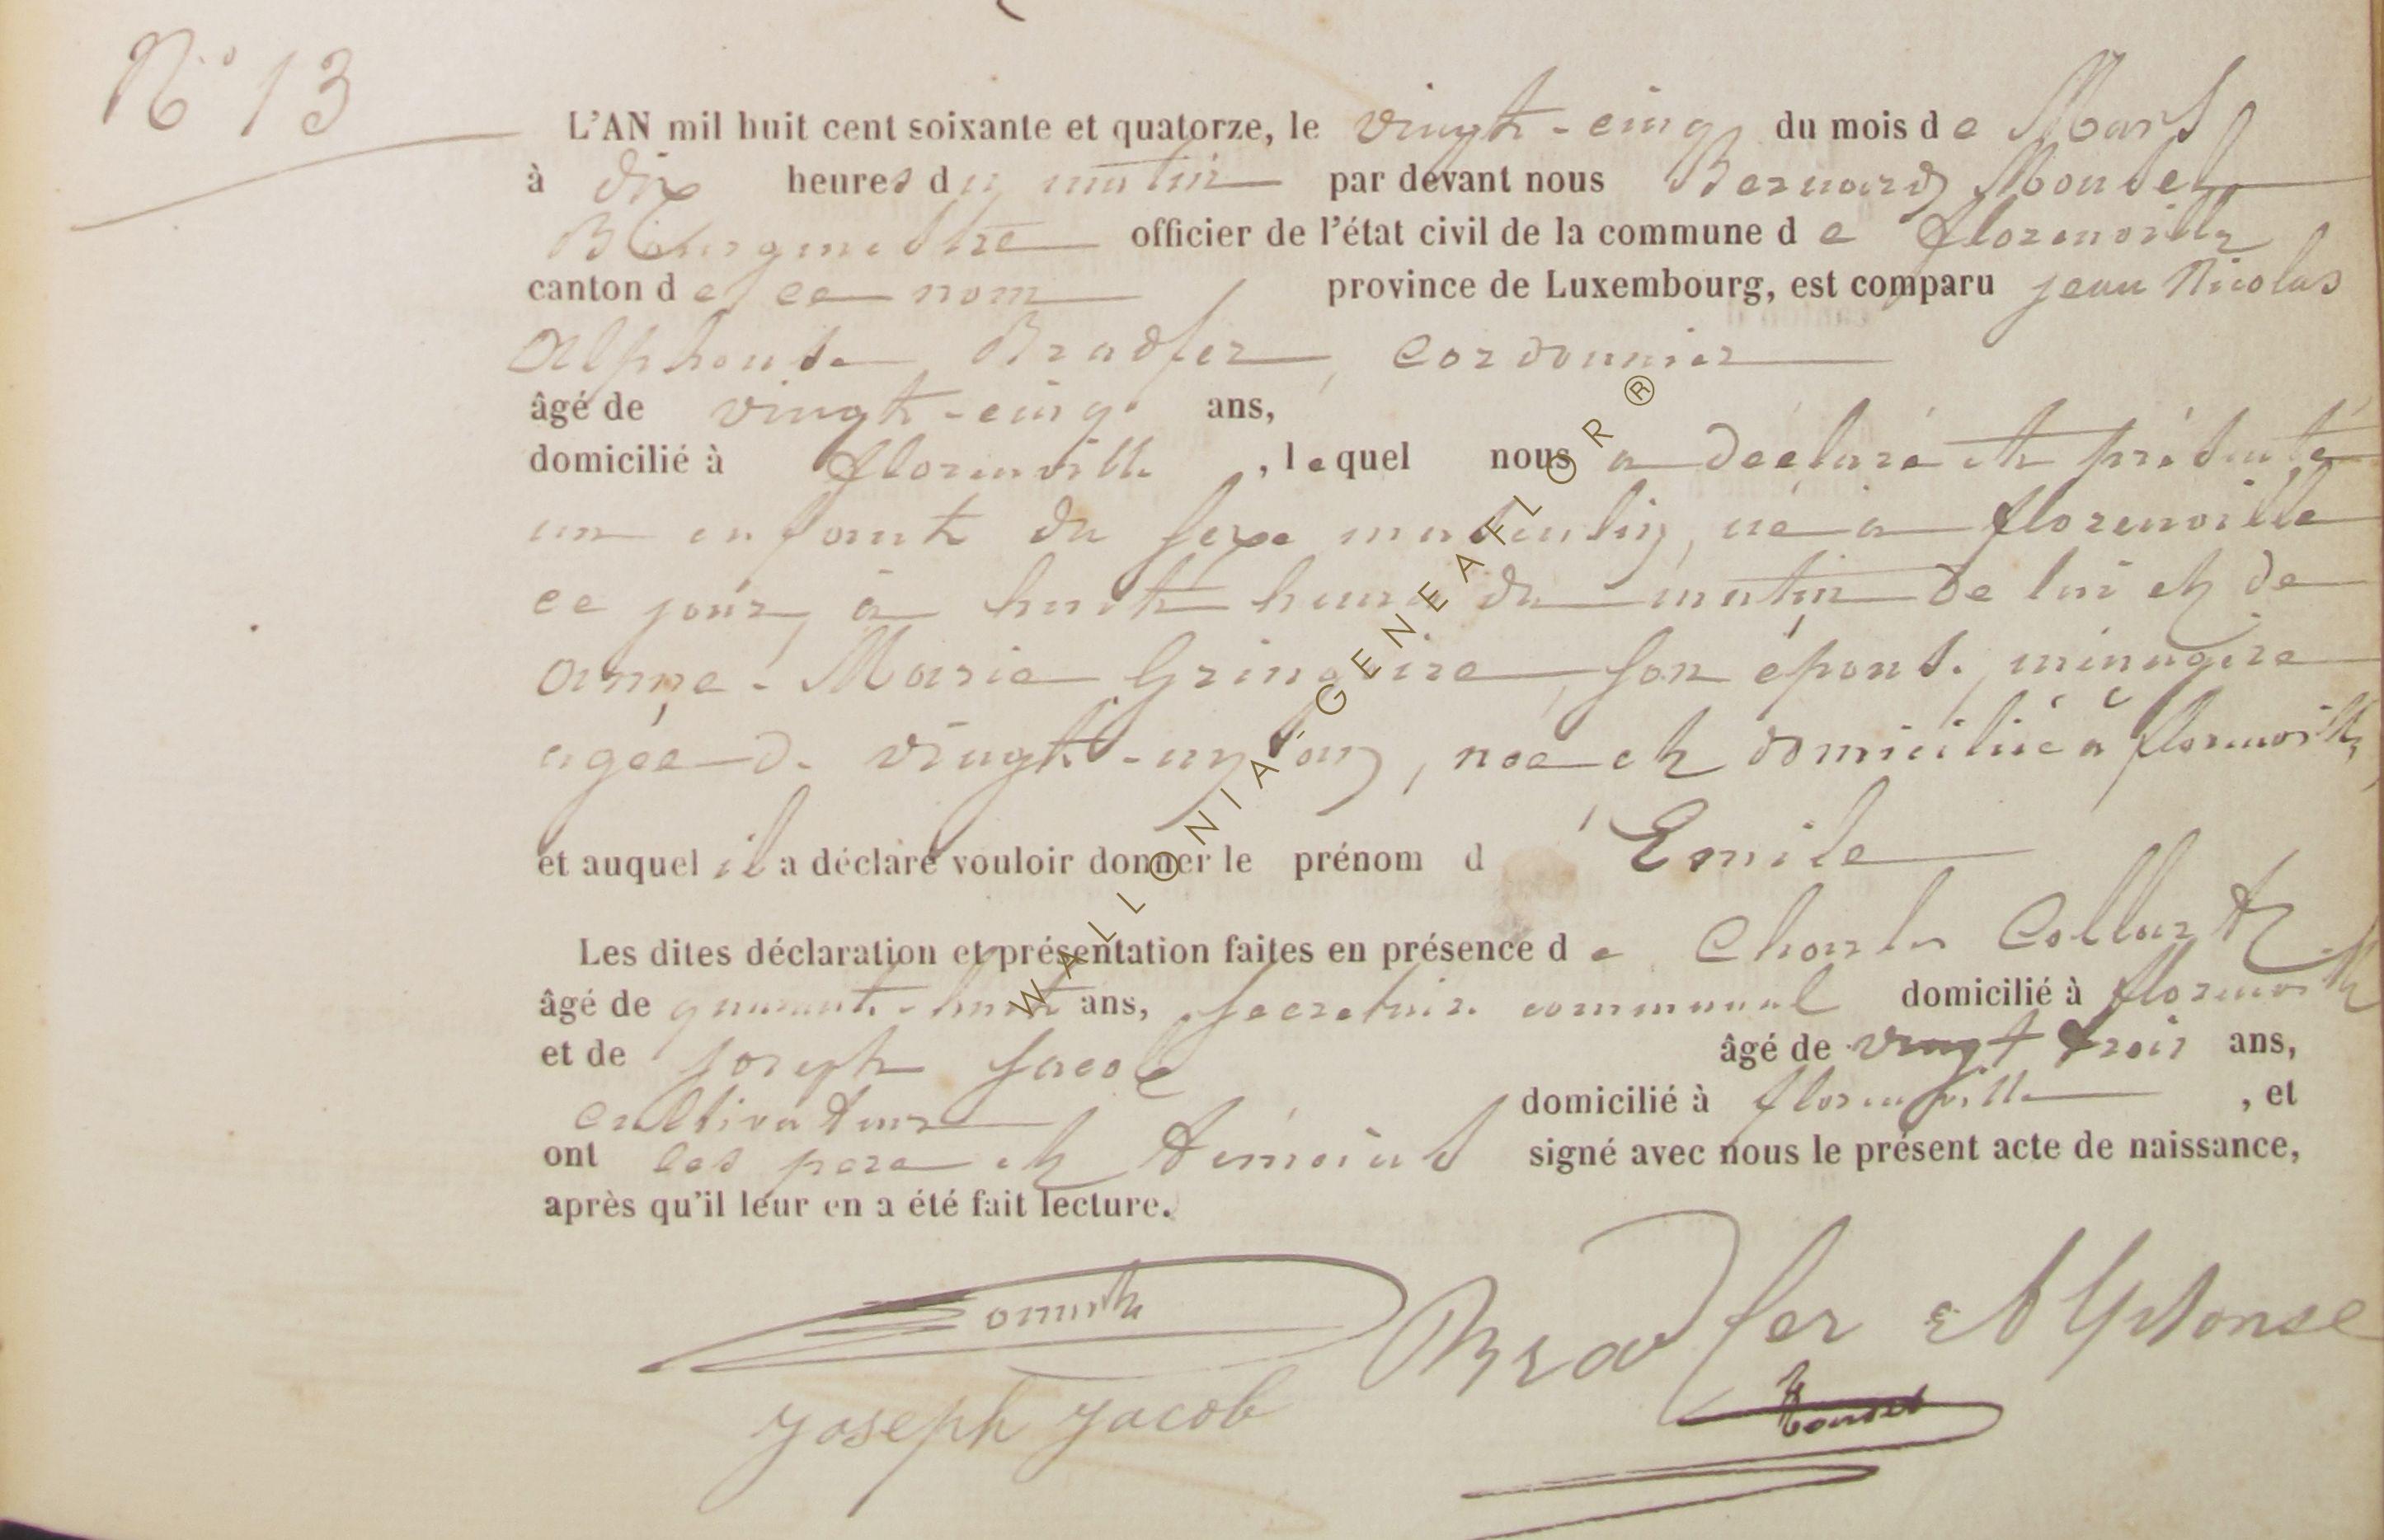 N° 13
L'AN mil huit cent soixante et quatorze, le vingt-cinq du mois de Mars
à dix heures du matin par devant nous Bernard
Bourgmestre officier de l'état civil de la commune de florenville
canton de ce nom province de Luxembourg, est comparu jean Nicolas
Alphonse Bradfer, cordonnier
âgé de vingt-cinq ans,
domicilié à florenville, lequel nous a déclaré et présenté
un enfant du sexe masculin, né à florenville
ce jour, à huit heures du matin de lui et de
anne-Marie Gringoire, son épouse, ménagère
agée de vingt-un ans, née et domiciliée à florenville,
et auquel il a déclaré vouloir donner le prénom d'Emile
Les dites déclaration et présentation faites en présence de Charles Collart
âgé de quarante-huit ans, secretaire communal domicilié à florenville
et de joseph jacob âgé de vingt trois ans,
cultivateur domicilié à florenville, et
ont les pere et témoins signé avec nous le présent acte de naissance,
après qu'il leur en a été fait lecture.
Bradfer Alphonse
joseph jacob
WALLONIA-GENEAFLOR®